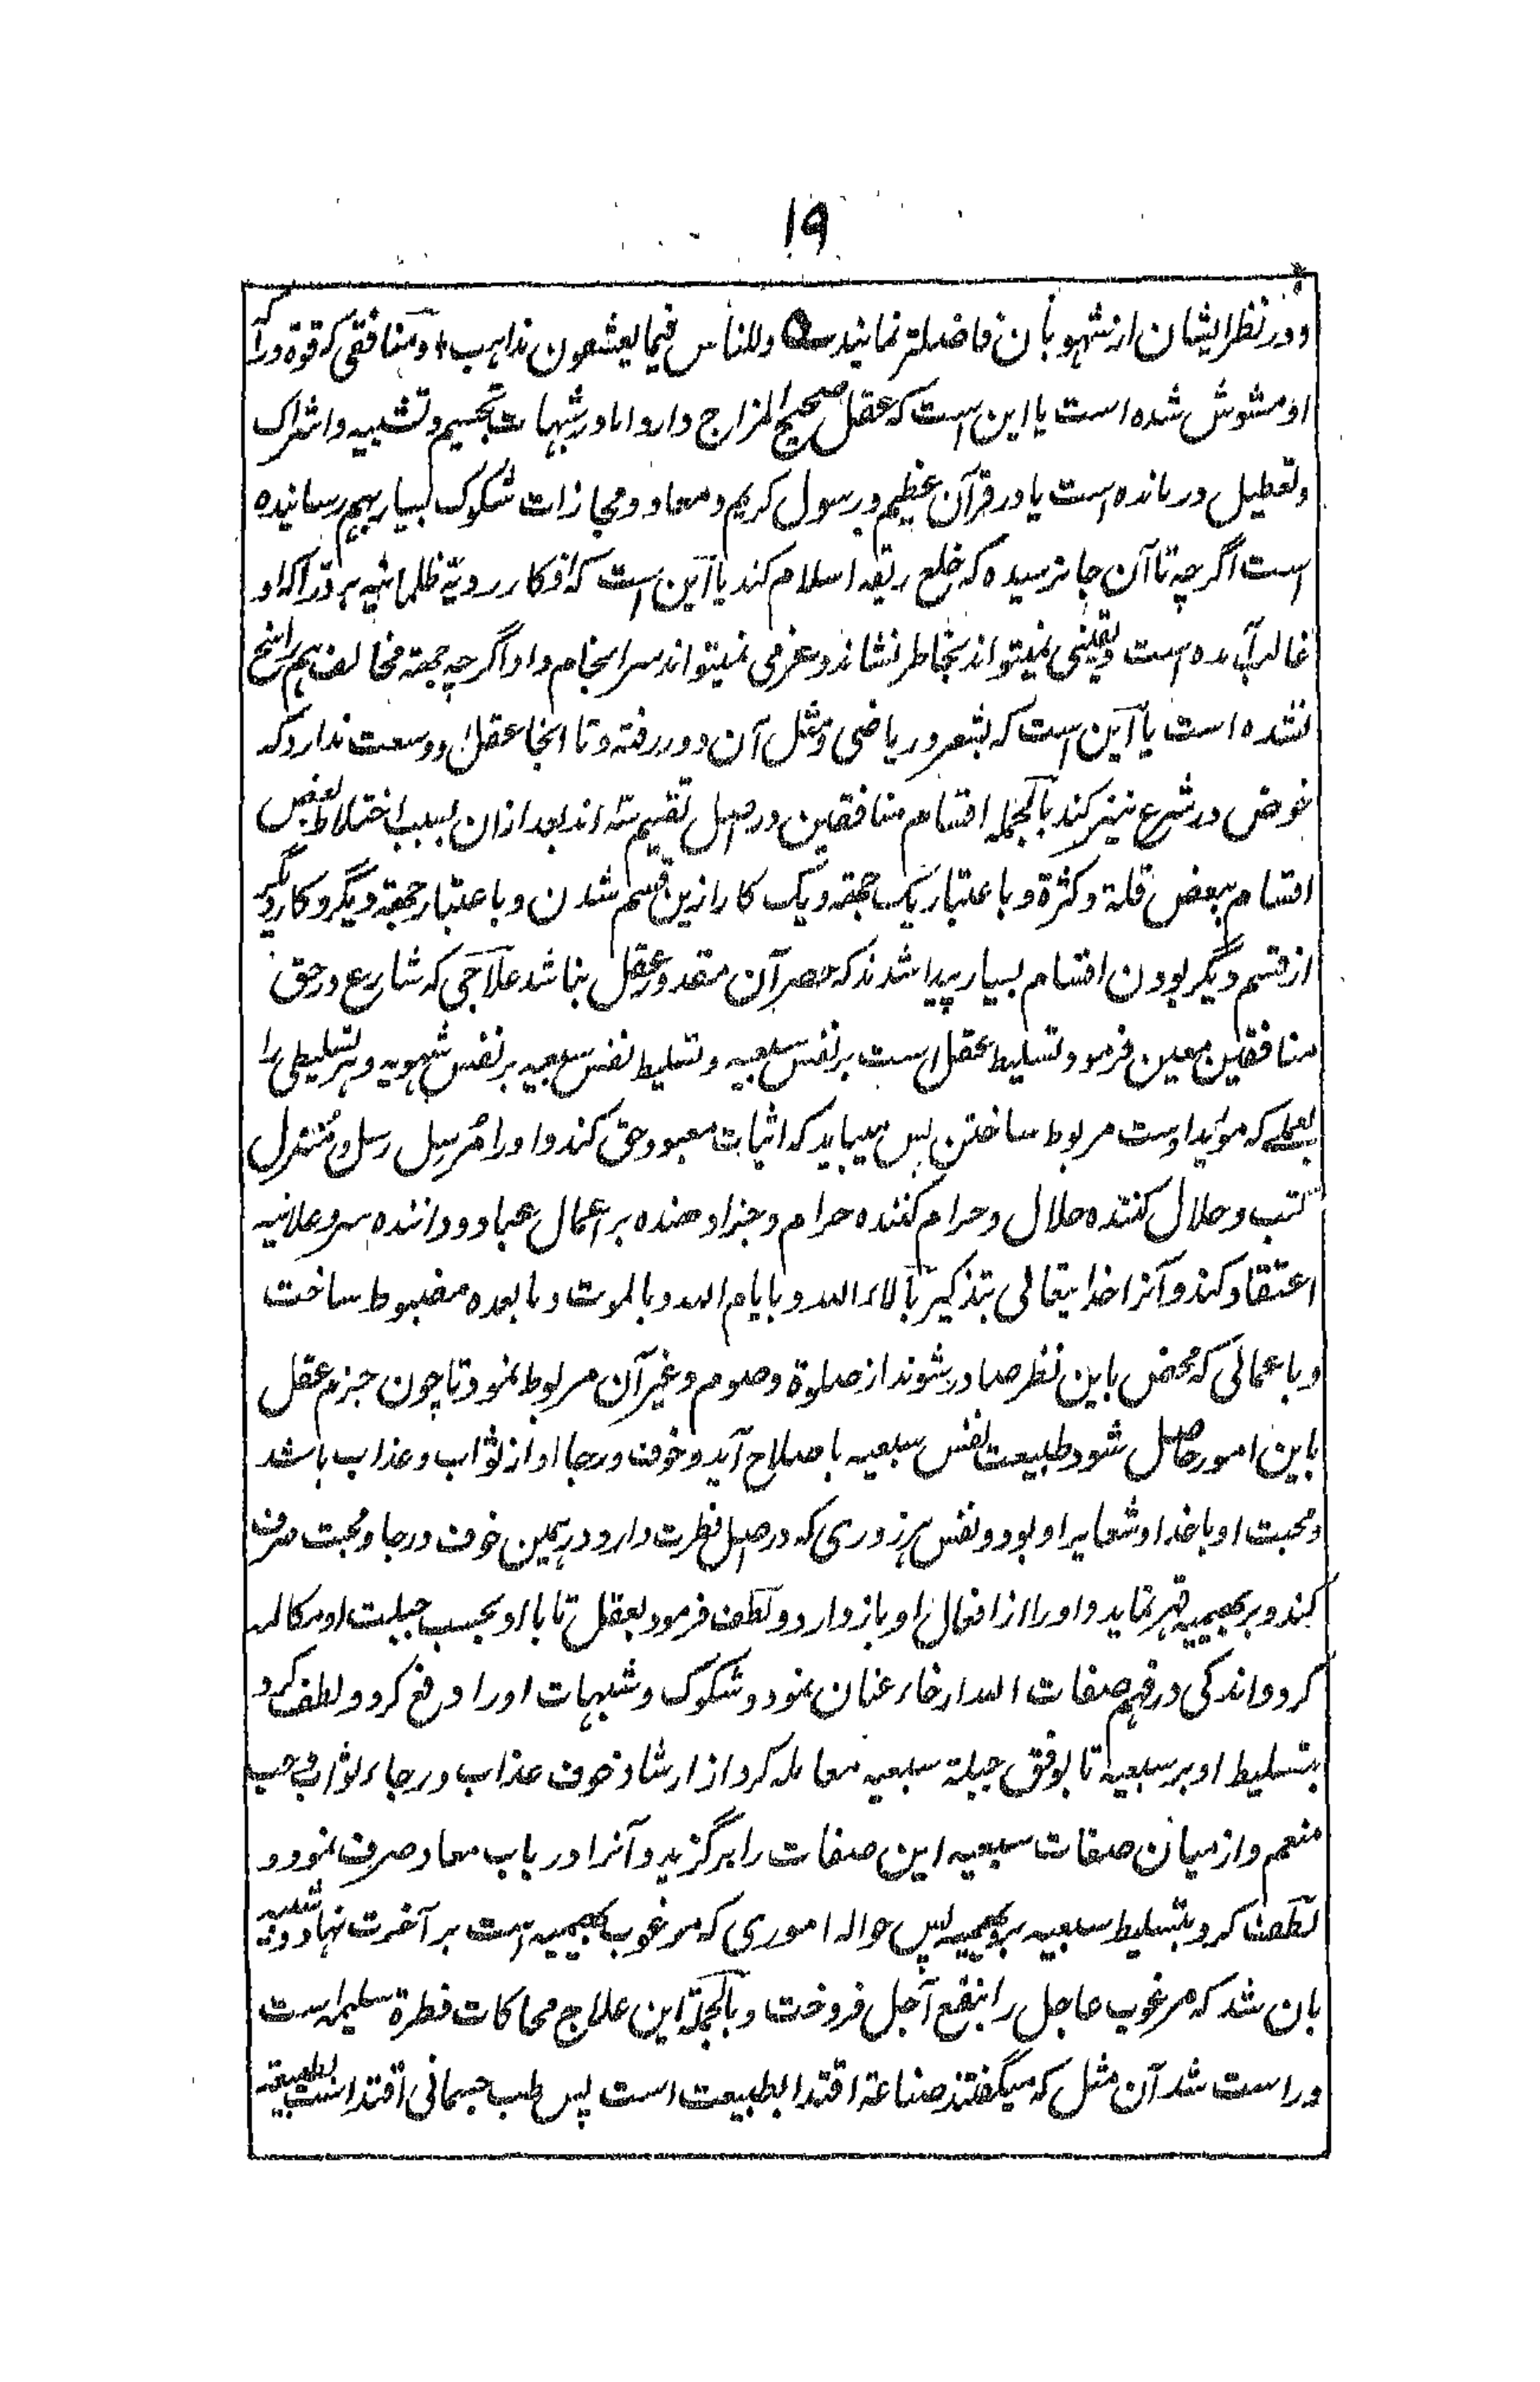 ۱۹
و در نظر ایشان از شهوبان فاضلتر نمایند ؎ وللناس فیما یعشقون مذاهب ٭ و منافقی که قوة دراکه
او مشوش شده است یا این است که عقل صحیح المزاج دارد اما در شبهات تجسیم و تشبیه و اشراک
و تعطیل درمانده است یا در قرآن عظیم و رسول کریم و معاد و مجازات شکوک بسیار بهم رسانیده
است اگر چه تا آن جا نرسیده که خلع ربقه اسلام کند یا آین است که افکار ردیّة ظلمانیه بر درّاکه او
غالب آمده است و یقینی نمیتواند بخاطر نشاند و عزمی نمیتواند سرانجام داد اگر چه جهة مخالف هم راسخ
نشده است یا آین است که بشعر و ریاضی و مثل آن دور رفته و تا انجا عقل او وسعت ندارد که
خوض در شرع نیز کند بالجمله اقسام منافقین در اصل تقسیم سته اند بعد ازان بسبب اختلاط بعض
اقسام ببعض قلة و کثرة و باعتبار یک جهة و یک کار ازین قسم شدن و باعتبار جهة دیگر و کار دیگر
از قسم دیگر بودن اقسام بسیار پیدا شدند که حصر آن مقدور عقل نباشد علاجی که شارع در حق
منافقین معین فرمود تسلیط عقل است بر نفس سبعیه و تسلیط نفس سبعیه بر نفس شهویه و هر تسلیطی را
بعملے که مؤید اوست مربوط ساختن پس میباید که اثبات معبود حق کند و او را مُرسِل رسل و مُنزل
کتب و حلال کننده حلال و حرام کننده حرام و جزا دهنده بر اعمال عباد و داننده سر و علانیه
اعتقاد کند و آنرا خدایتعالی بتذکیر بآلاء الله و بایام الله و بالموت و ما بعده مضبوط ساخت
و باعمالی که محض باین نظر صادر شوند از صلوة و صوم و غیر آن مربوط نمود تا چون جزم عقل
باین امور حاصل شود طبیعت نفس سبعیه باصلاح آید و خوف و رجا او از ثواب و عذاب باشد
و محبت او با خدا و شعایر او بود و نفس هر زوری که در اصل فطرت دارد در همین خوف و رجا و محبت صرف
کند و بر بهیمیه قهر نماید و او را از افعال او باز دارد و لطف فرمود بعقل تا با او بحسب جبلت او مکالمه
کرد و اندکی در فهم صفات الله ارخاء عنان نمود و شکوک و شبهات او را دفع کرد و لطف کرد
بتسلیط او بر سبعیه تا بوفق جبلة سبعیه معامله کرد از ارشاد خوف عذاب و رجاء ثواب و حب
منعم و از میان صفات سبعیه این صفات را برگزید و آنرا در باب معاد صرف نمود و
لطف کرد بتسلیط سبعیه بر بهیمیه پس حواله اموری که مرغوب بهیمیه است بر آخرت نهاد و
بان شد که مرغوب عاجل را بنفع آجل فروخت و بالجملة این علاج محاکات فطرة سلیمه است
و راست شد آن مثل که میگفتند صناعة اقتدا بطبیعت است پس طب جسمانی اقتدا است بطبیعة